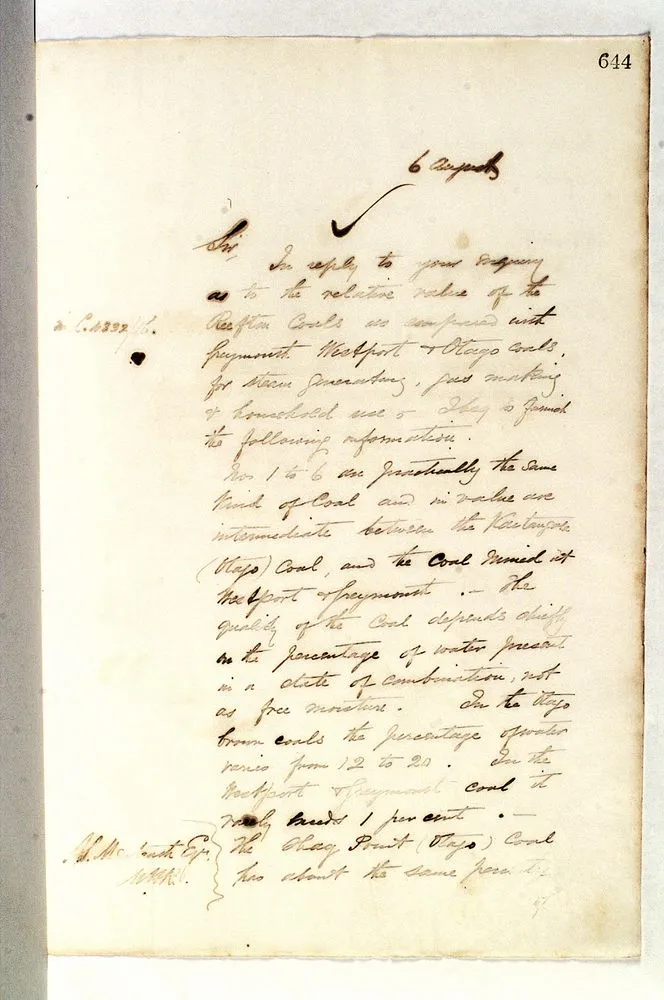 644
6 August
Sir,
In reply to your enquiry
as to the relative value of the
Reefton Coals as compared with
Greymouth Westport & Otago coals,
for steam generating, gas making
& household use I beg to furnish
the following information.
Nos 1 to 6 are practically the same
kind of Coal and in value are
intermediate between the Kaitangata
(Otago) Coal, and the Coal mined at
Westport & Greymouth . — The
quality of the Coal depends chiefly
on the percentage of water present
in a state of combination, not
as free moisture. In the Otago
brown coals the percentage of water
varies from 12 to 20 . In the
Westport & Greymouth coal it
rarely exceeds 1 per cent . —
The Shag Point (Otago) Coal
has about the same